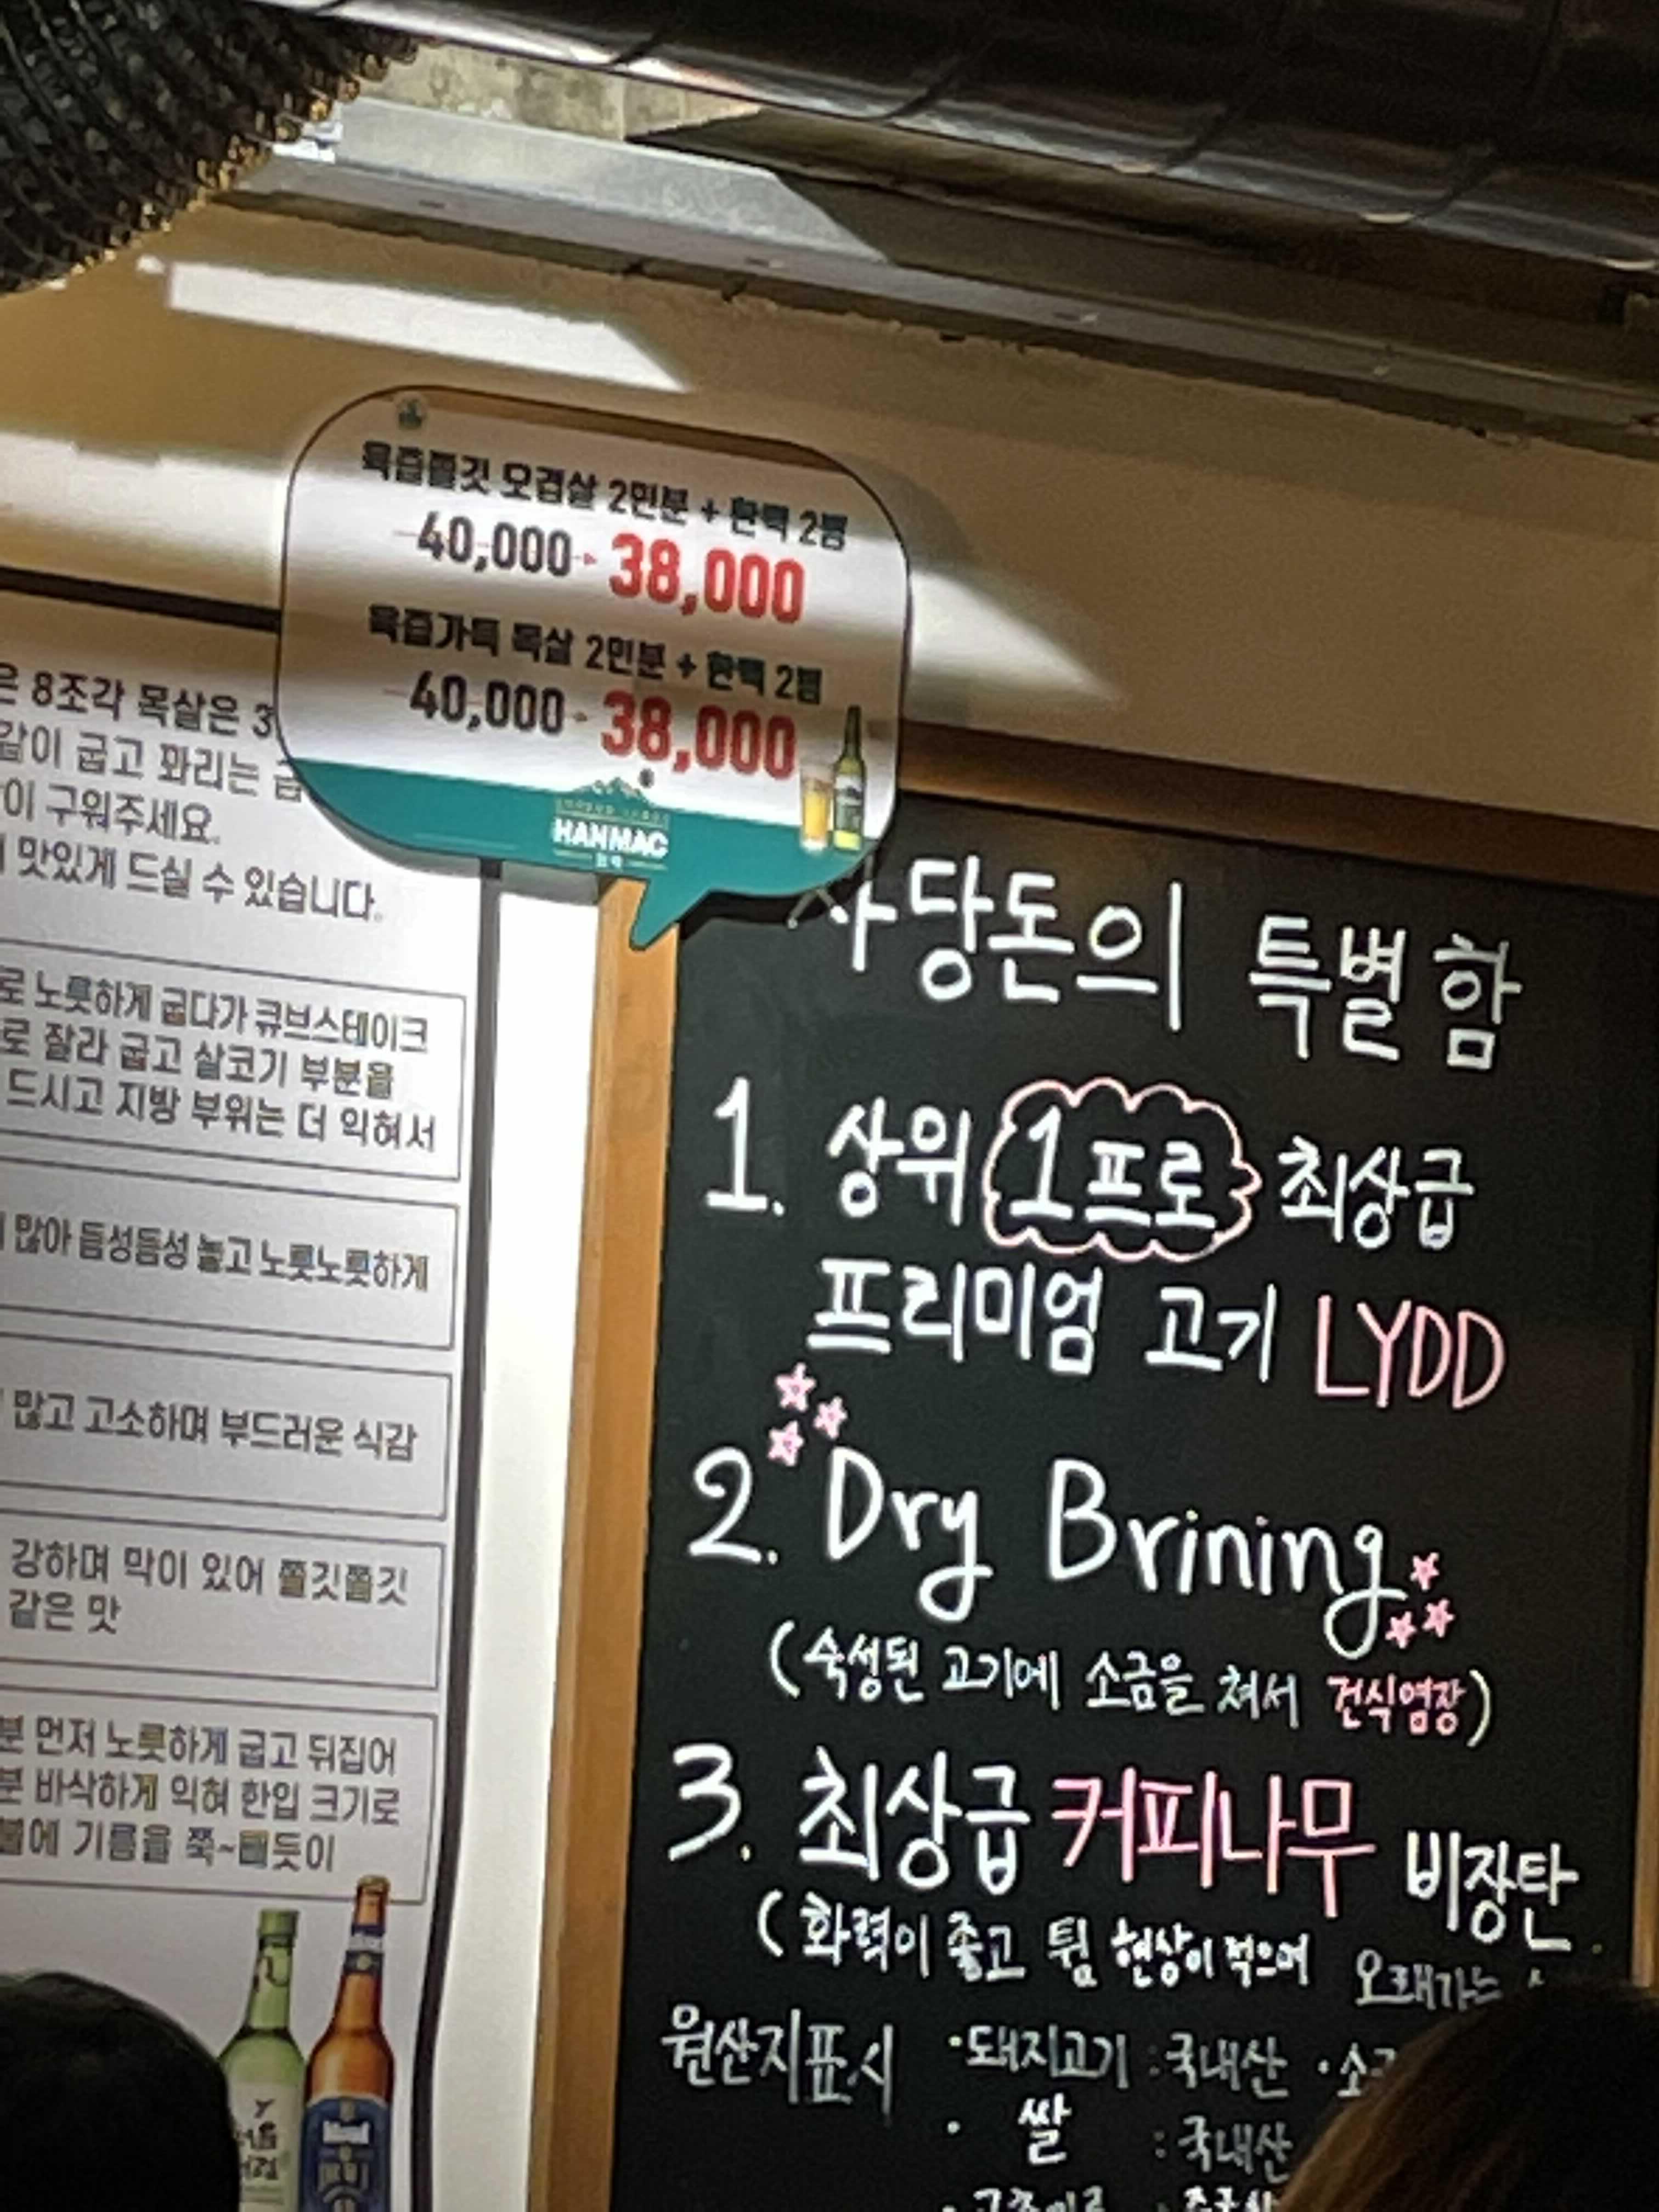 육즙쫄깃 오겹살 2인분 + 한맥 2병
40,000 38,000
육즙가득 목살 2인분 + 한맥 2병
40,000 38,000
HANMAC
한맥
은 8조각 목살은 3
같이 굽고 꽈리는
이 구워주세요.
맛있게 드실 수 있습니다.
로 노릇하게 굽다가 큐브스테이크
로 잘라 굽고 살코기 부분을
드시고 지방 부위는 더 익혀서
많아 듬성듬성 놓고 노릇노릇하게
많고 고소하며 부드러운 식감
강하며 막이 있어 쫄깃쫄깃
같은 맛
분 먼저 노릇하게 굽고 뒤집어
분 바삭하게 익혀 한입 크기로
기름을 쭉~뺄듯이
당돈의 특별함
1. 상위 1프로 최상급
프리미엄 고기 LYDD
2. Dry Brining
(숙성된 고기에 소금을 쳐서 건식염장)
3. 최상급 커피나무 비장탄
(화력이 좋고 튐 현상이 적으며 오래가는
원산지표시 ·돼지고기 : 국내산
· 쌀 : 국내산